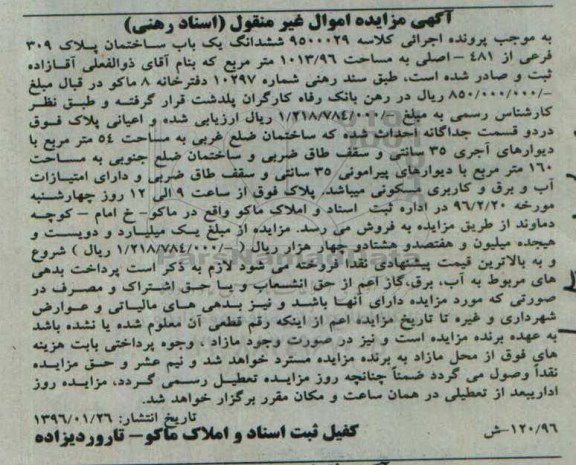 آگهی مزایده اموال غیر منقول (اسناد رهنی)
به موجب پرونده اجرائی کلاسه ۹۵۰۰۰۲۹ ششدانگ یک باب ساختمان پلاک ۳۰۹
فرعی از ۴۸۱ - اصلی به مساحت ۱۰۱۳/۹۶ متر مربع که بنام آقای ذوالفعلی آقازاده
ثبت و صادر شده است، طبق سند رهنی شماره ۱۰۲۹۷ دفترخانه ۸ ماکو در قبال مبلغ
۸۵۰/۰۰۰/۰۰۰/- ریال در رهن بانک رفاه کارگران پلدشت قرار گرفته و طبق نظر
کارشناس رسمی به مبلغ ۱/۲۱۸/۷۸۴/۰۰۰/- ریال ارزیابی شده و اعیانی پلاک فوق
دردو قسمت جداگانه احداث شده که ساختمان ضلع غربی به مساحت ۵۴ متر مربع با
دیوارهای آجری ۳۵ سانتی و سقف طاق ضربی و ساختمان ضلع جنوبی به مساحت
۱۶۰ متر مربع با دیوارهای پیرامونی ۳۵ سانتی و سقف طاق ضربی و دارای امتیازات
آب و برق و کاربری مسکونی میباشد. پلاک فوق از ساعت ۹ الی ۱۲ روز چهارشنبه
مورخه ۹۶/۲/۲۰ در اداره ثبت اسناد و املاک ماکو واقع در ماکو- خ امام - کوچه
دماوند از طریق مزایده به فروش می رسد. مزایده از مبلغ یک میلیارد و دویست و
هیجده میلیون و هفتصدو هشتادو چهار هزار ریال (۱/۲۱۸/۷۸۴/۰۰۰/- ریال ) شروع
و به بالاترین قیمت پیشنهادی نقدا فروخته می شود لازم به ذکر است پرداخت بدهی
های مربوط به آب، برق،گاز اعم از حق انشعاب و یا حق اشتراک و مصرف در
صورتی که مورد مزایده دارای آنها باشد و نیز بدهی های مالیاتی و عوارض
شهرداری و غیره تا تاریخ مزایده اعم از اینکه رقم قطعی آن معلوم شده یا نشده باشد
به عهده برنده مزایده است و نیز در صورت وجود مازاد ، وجوه پرداختی بابت هزینه
های فوق از محل مازاد به برنده مزایده مسترد خواهد شد و نیم عشر و حق مزایده
نقداً وصول می گردد ضمناً چنانچه روز مزایده تعطیل رسمی گردد، مزایده روز
اداریبعد از تعطیلی در همان ساعت و مکان مقرر برگزار خواهد شد.
تاریخ انتشار: ۱۳۹۶/۰۱/۲۶
۱۲۰/۹۶-ش کفیل ثبت اسناد و املاک ماکو- تاروردیزاده